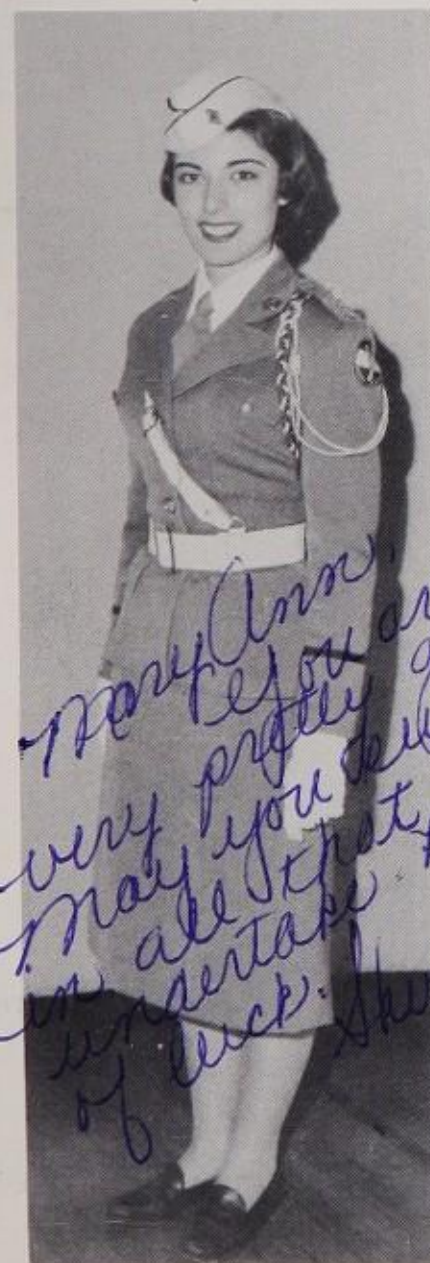 Mary Ann,
You
very pretty
May you
in all that
undertake
of luck.